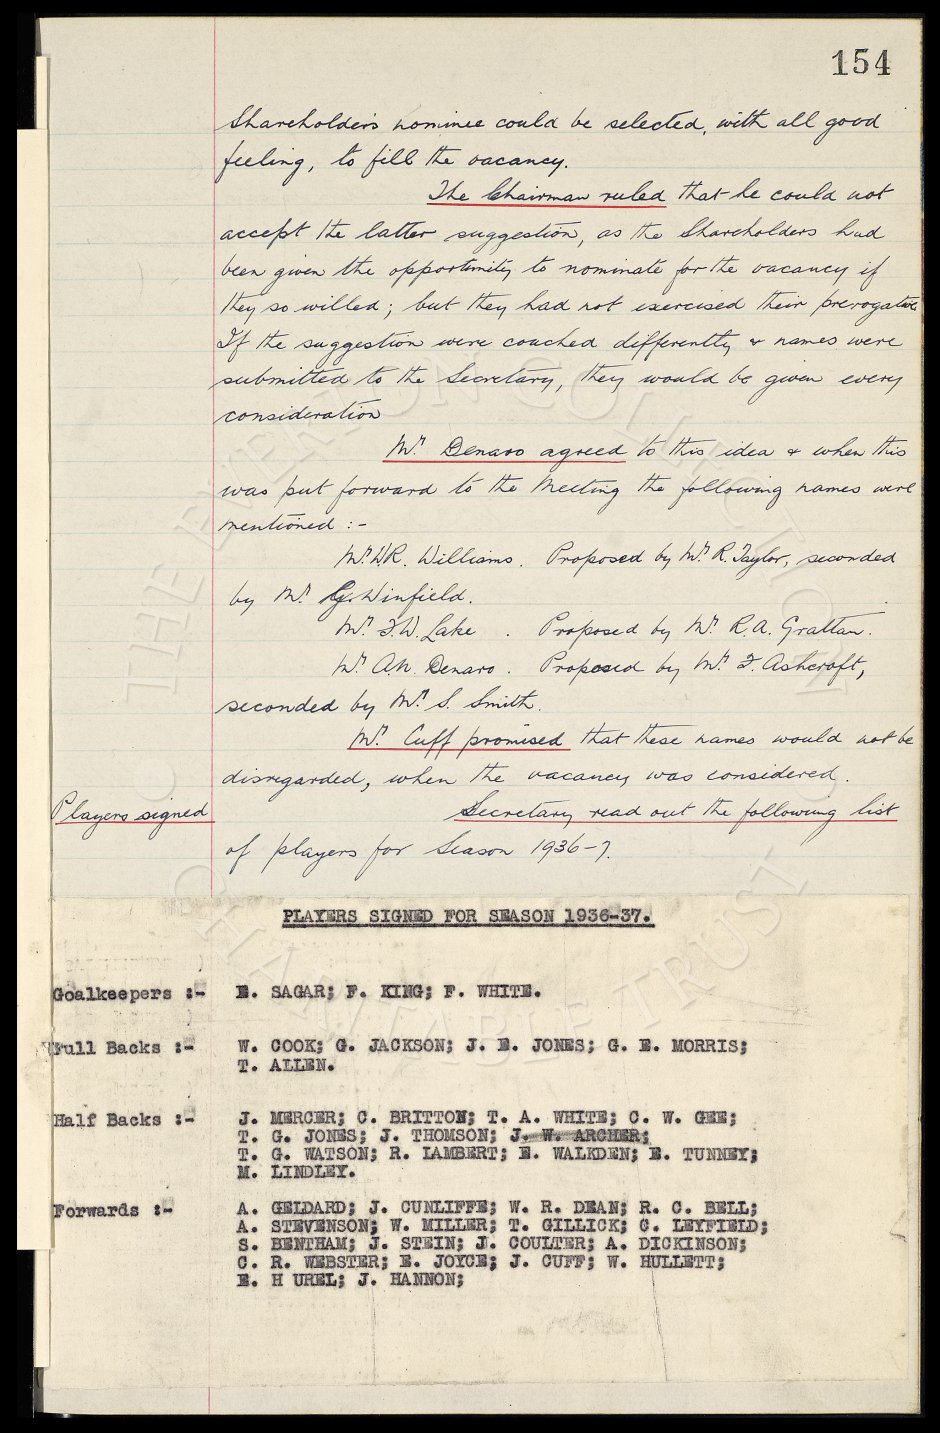 154
Shareholders nominee could be selected, with all good
feeling, to fill the vacancy.
The Chairman ruled that he could not
accept the latter suggestion, as the Shareholders had
been given the opportunity to nominate for the vacancy if
they so willed; but they had not exercised their prerogative
If the suggestion were couched differently & names were
submitted to the Secretary, they would be given every
consideration
Mr. Denaro agreed to this idea & when this
was put forward to the Meeting the following names were
mentioned :-
Mr. W.R. Williams. Proposed by Mr. R. Taylor, seconded
by Mr. G. Winfield.
Mr. F.W. Lake . Proposed by Mr. R.A. Grattan.
Mr. A.N. Denaro. Proposed by Mr. F. Ashcroft,
seconded by Mr. S. Smith.
Mr. Cuff promised that these names would not be
disregarded, when the vacancy was considered.
Players signed Secretary read out the following list
of players for Season 1936-7.
PLAYERS SIGNED FOR SEASON 1936-37.
Goalkeepers :- E. SAGAR; F. KING; F. WHITE.
Full Backs :- W. COOK; G. JACKSON; J. E. JONES; G. E. MORRIS;
T. ALLEN.
Half Backs :- J. MERCER; C. BRITTON; T. A. WHITE; C. W. GEE;
T. G. JONES; J. THOMSON; J. W. ARCHER;
T. G. WATSON; R. LAMBERT; E. WALKDEN; E. TUNNEY;
M. LINDLEY.
Forwards :- A. GELDARD; J. CUNLIFFE; W. R. DEAN; R. C. BELL;
A. STEVENSON; W. MILLER; T. GILLICK; C. LEYFIELD;
S. BENTHAM; J. STEIN; J. COULTER; A. DICKINSON;
C. R. WEBSTER; E. JOYCE; J. CUFF; W. HULLETT;
E. H UREL; J. HANNON;
© THE EVERTON COLLECTION
CHARITABLE TRUST